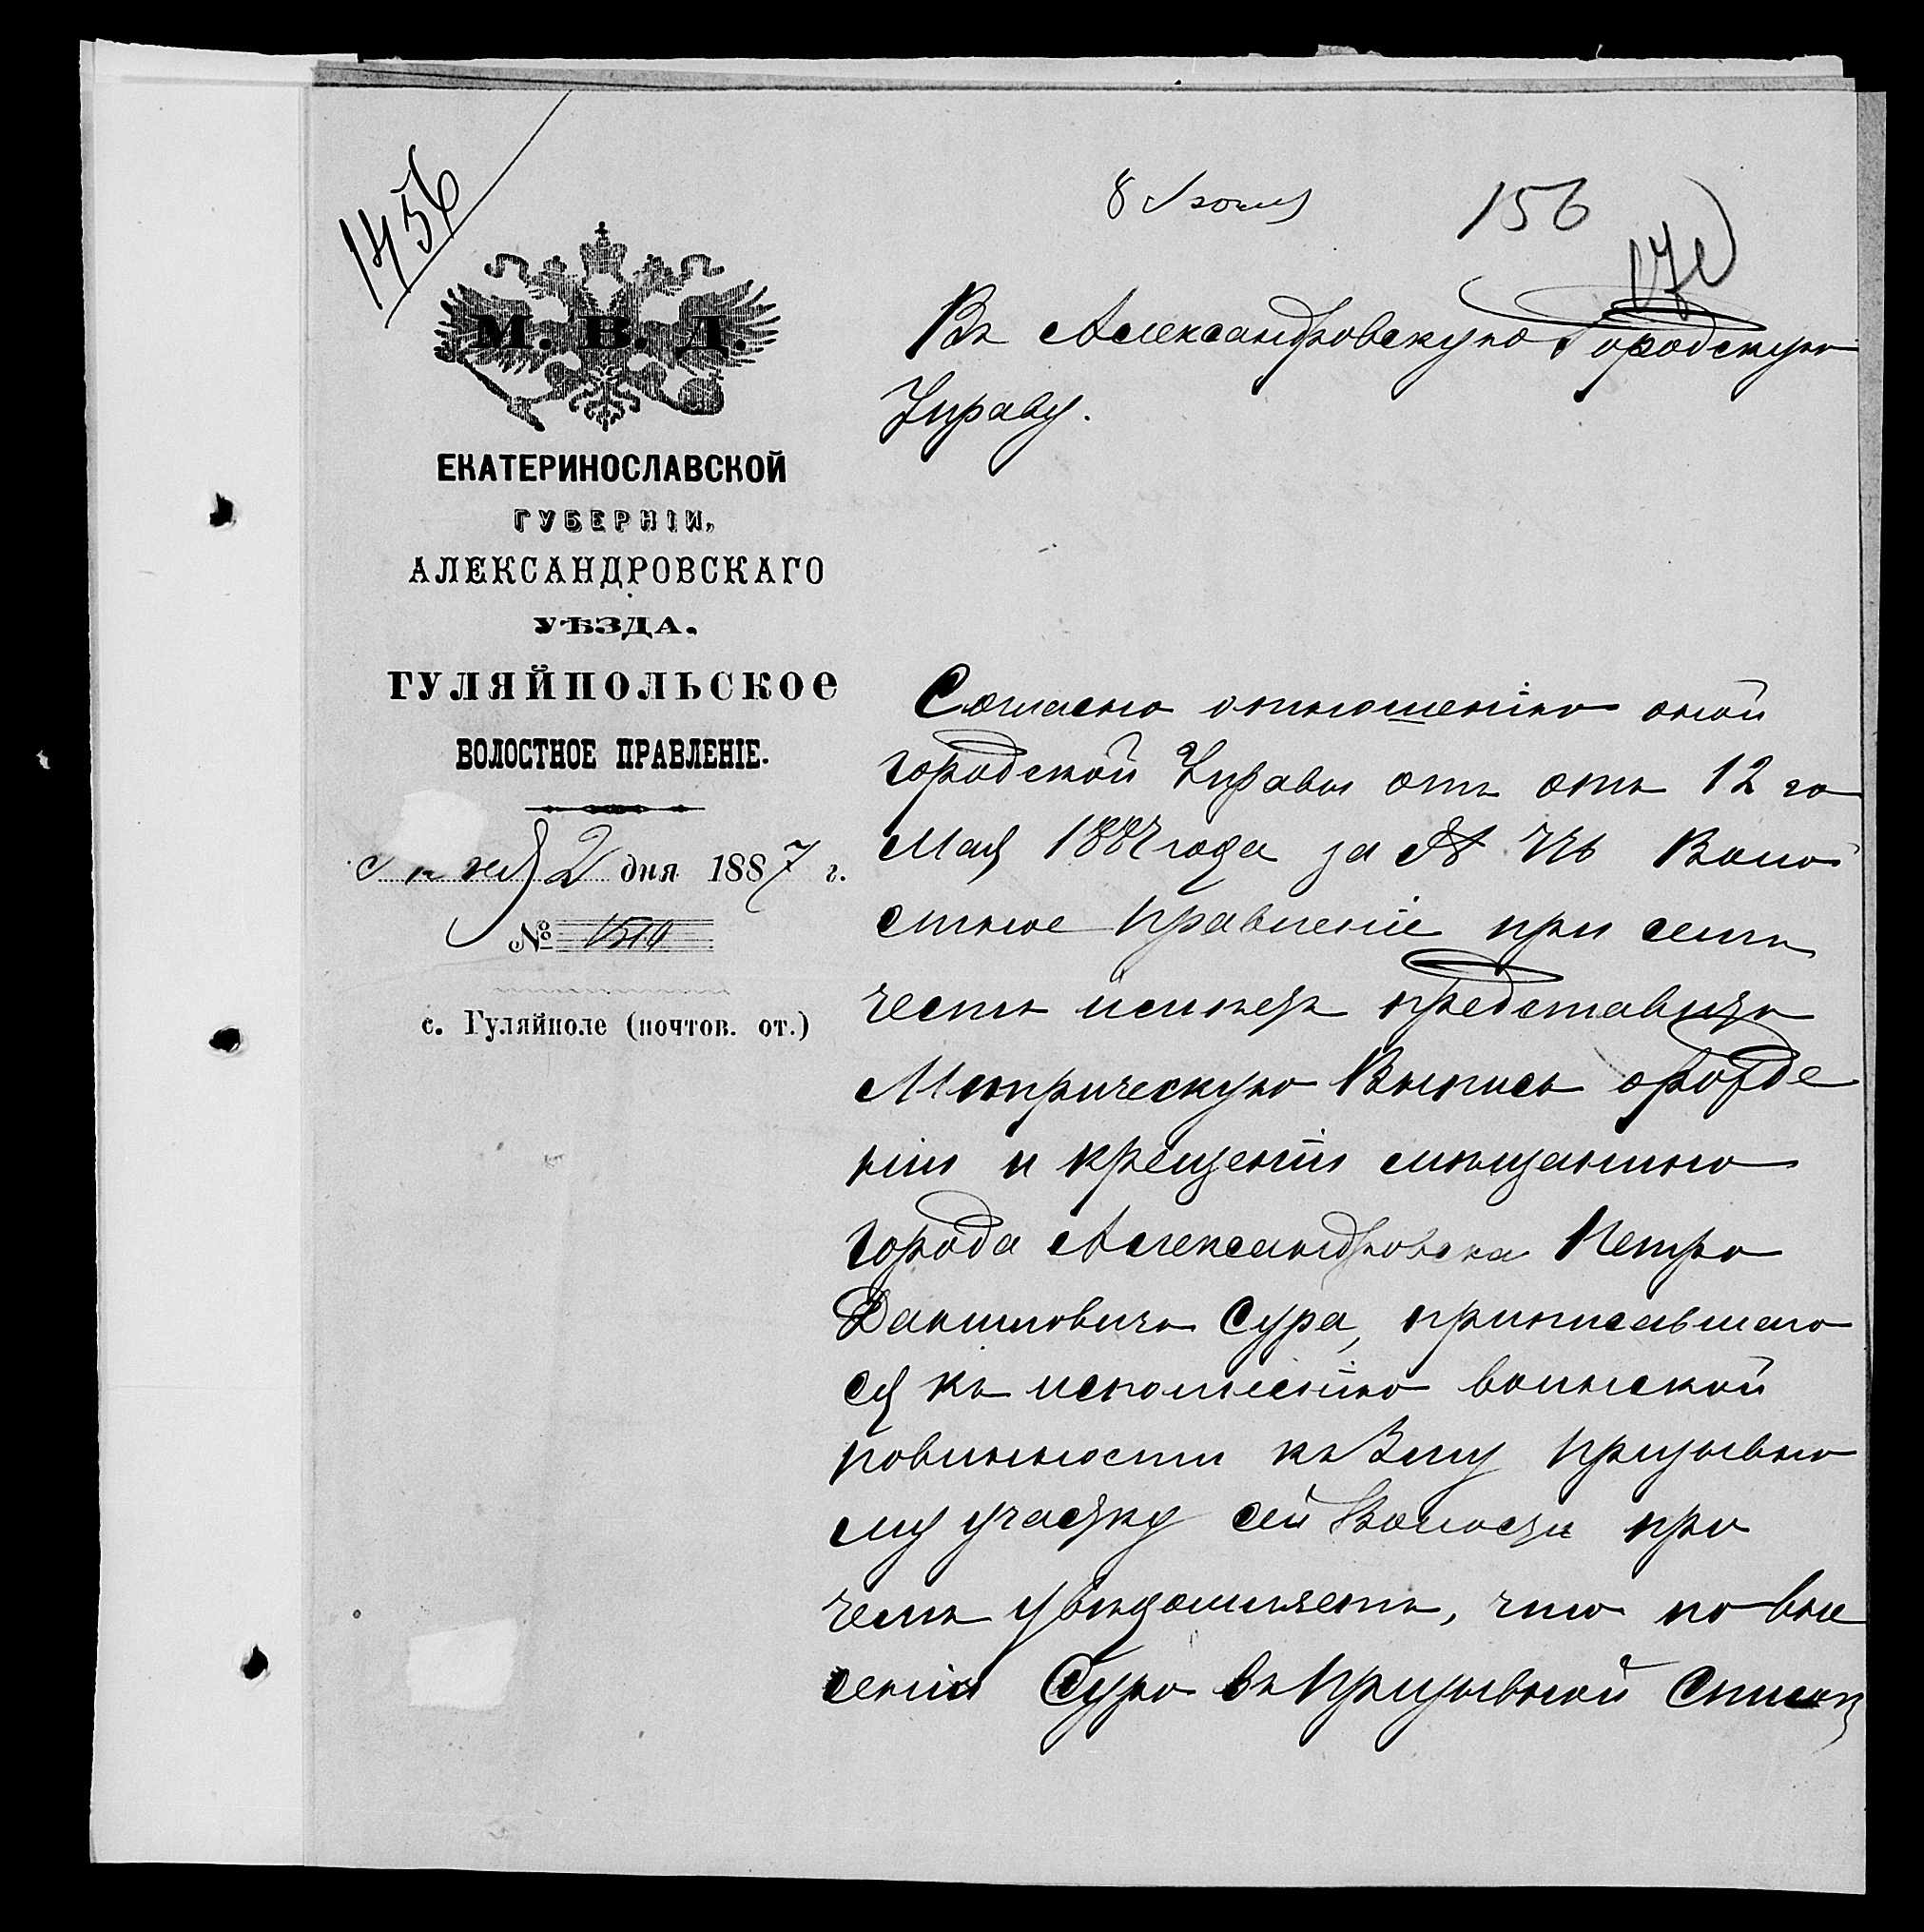 1456
8 Іюня
156
М. В. Д.
ЕКАТЕРИНОСЛАВСКОЙ
ГУБЕРНІИ,
АЛЕКСАНДРОВСКАГО
УѢЗДА.
ГУЛЯЙПОЛЬСКОЕ
ВОЛОСТНОЕ ПРАВЛЕНІЕ.
2 дня 1887 г.
№
с. Гуляйполе (почтов. от.)
Въ Александровскую Городскую
Управу.
Согласно отношенію оной
городской Управы отъ отъ 12 го
Мая 1887 года за № Воло
стное Правленіе при семъ
честь имѣетъ представить
Метрическую Выпись о рожде
ніи и крещеніи мѣщанина
города Александровска Петра
Даниловича Сура, приписавшаго
ся къ исполненію воинской
повинности къ 3му призывно
му участку сей Волости при
чемъ увѣдомляетъ, что по вне
сеніи Суро въ Призывной Списокъ